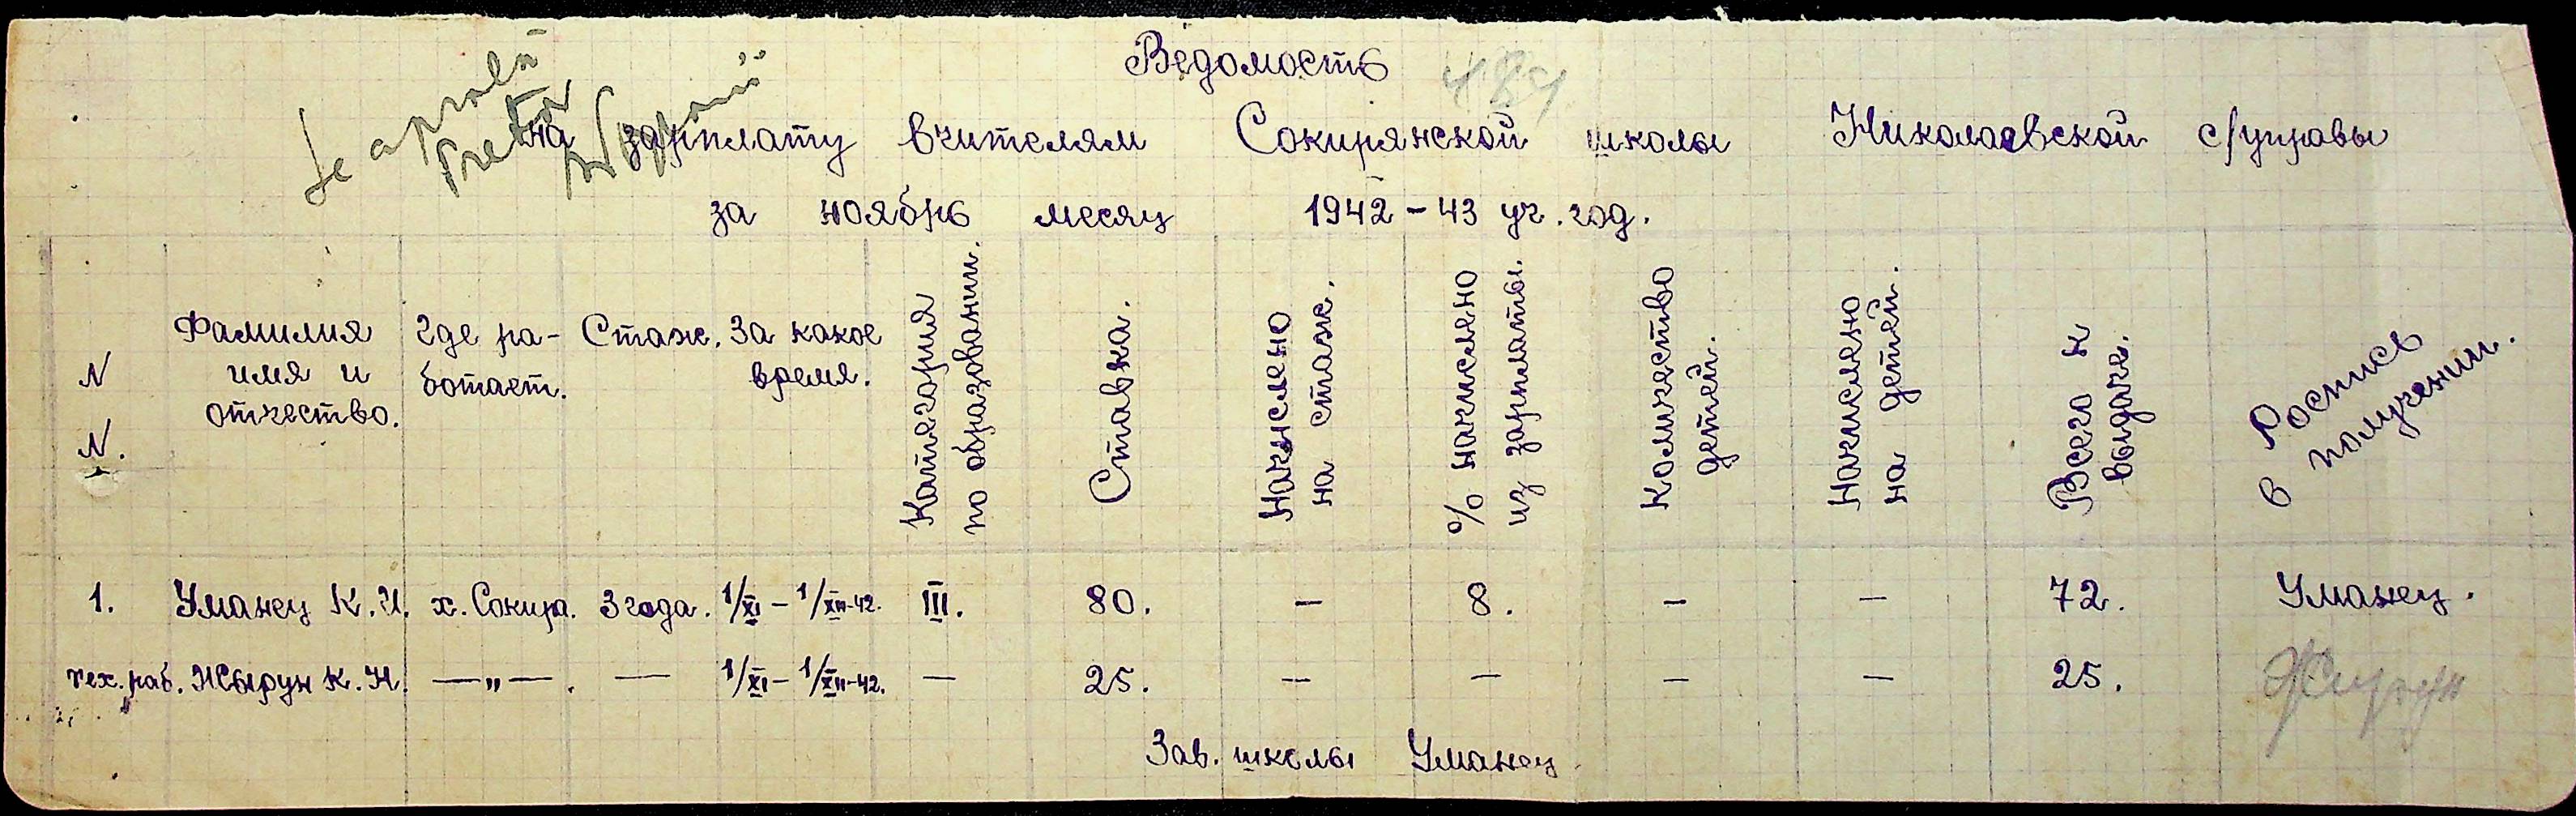 Ведомость
Se aprobă
Pretor
на зарплату вчителям Сокирянской школы Николаевской с/управы
за ноябрь месяц 1942-43 уч. год.
N N.
Фамилия имя и отчество.
Где ра-
ботает.
Стаж.
За какое время.
Категория по образовании.
Ставка.
Начислено на стаж.
% начислено из зарплаты.
Количество детей.
Начислено на детей.
Всего к выдаче.
Роспись в получении.
1. Уманец К.И. х. Сокира. 3 года. 1/XI - 1/XII-42. III. 80. - 8. - - 72. Уманец.
тех. раб. Жырун К.Н. —„—. — 1/XI - 1/XII-42. — 25. - - - - 25. Жирун
Зав. школы Уманец